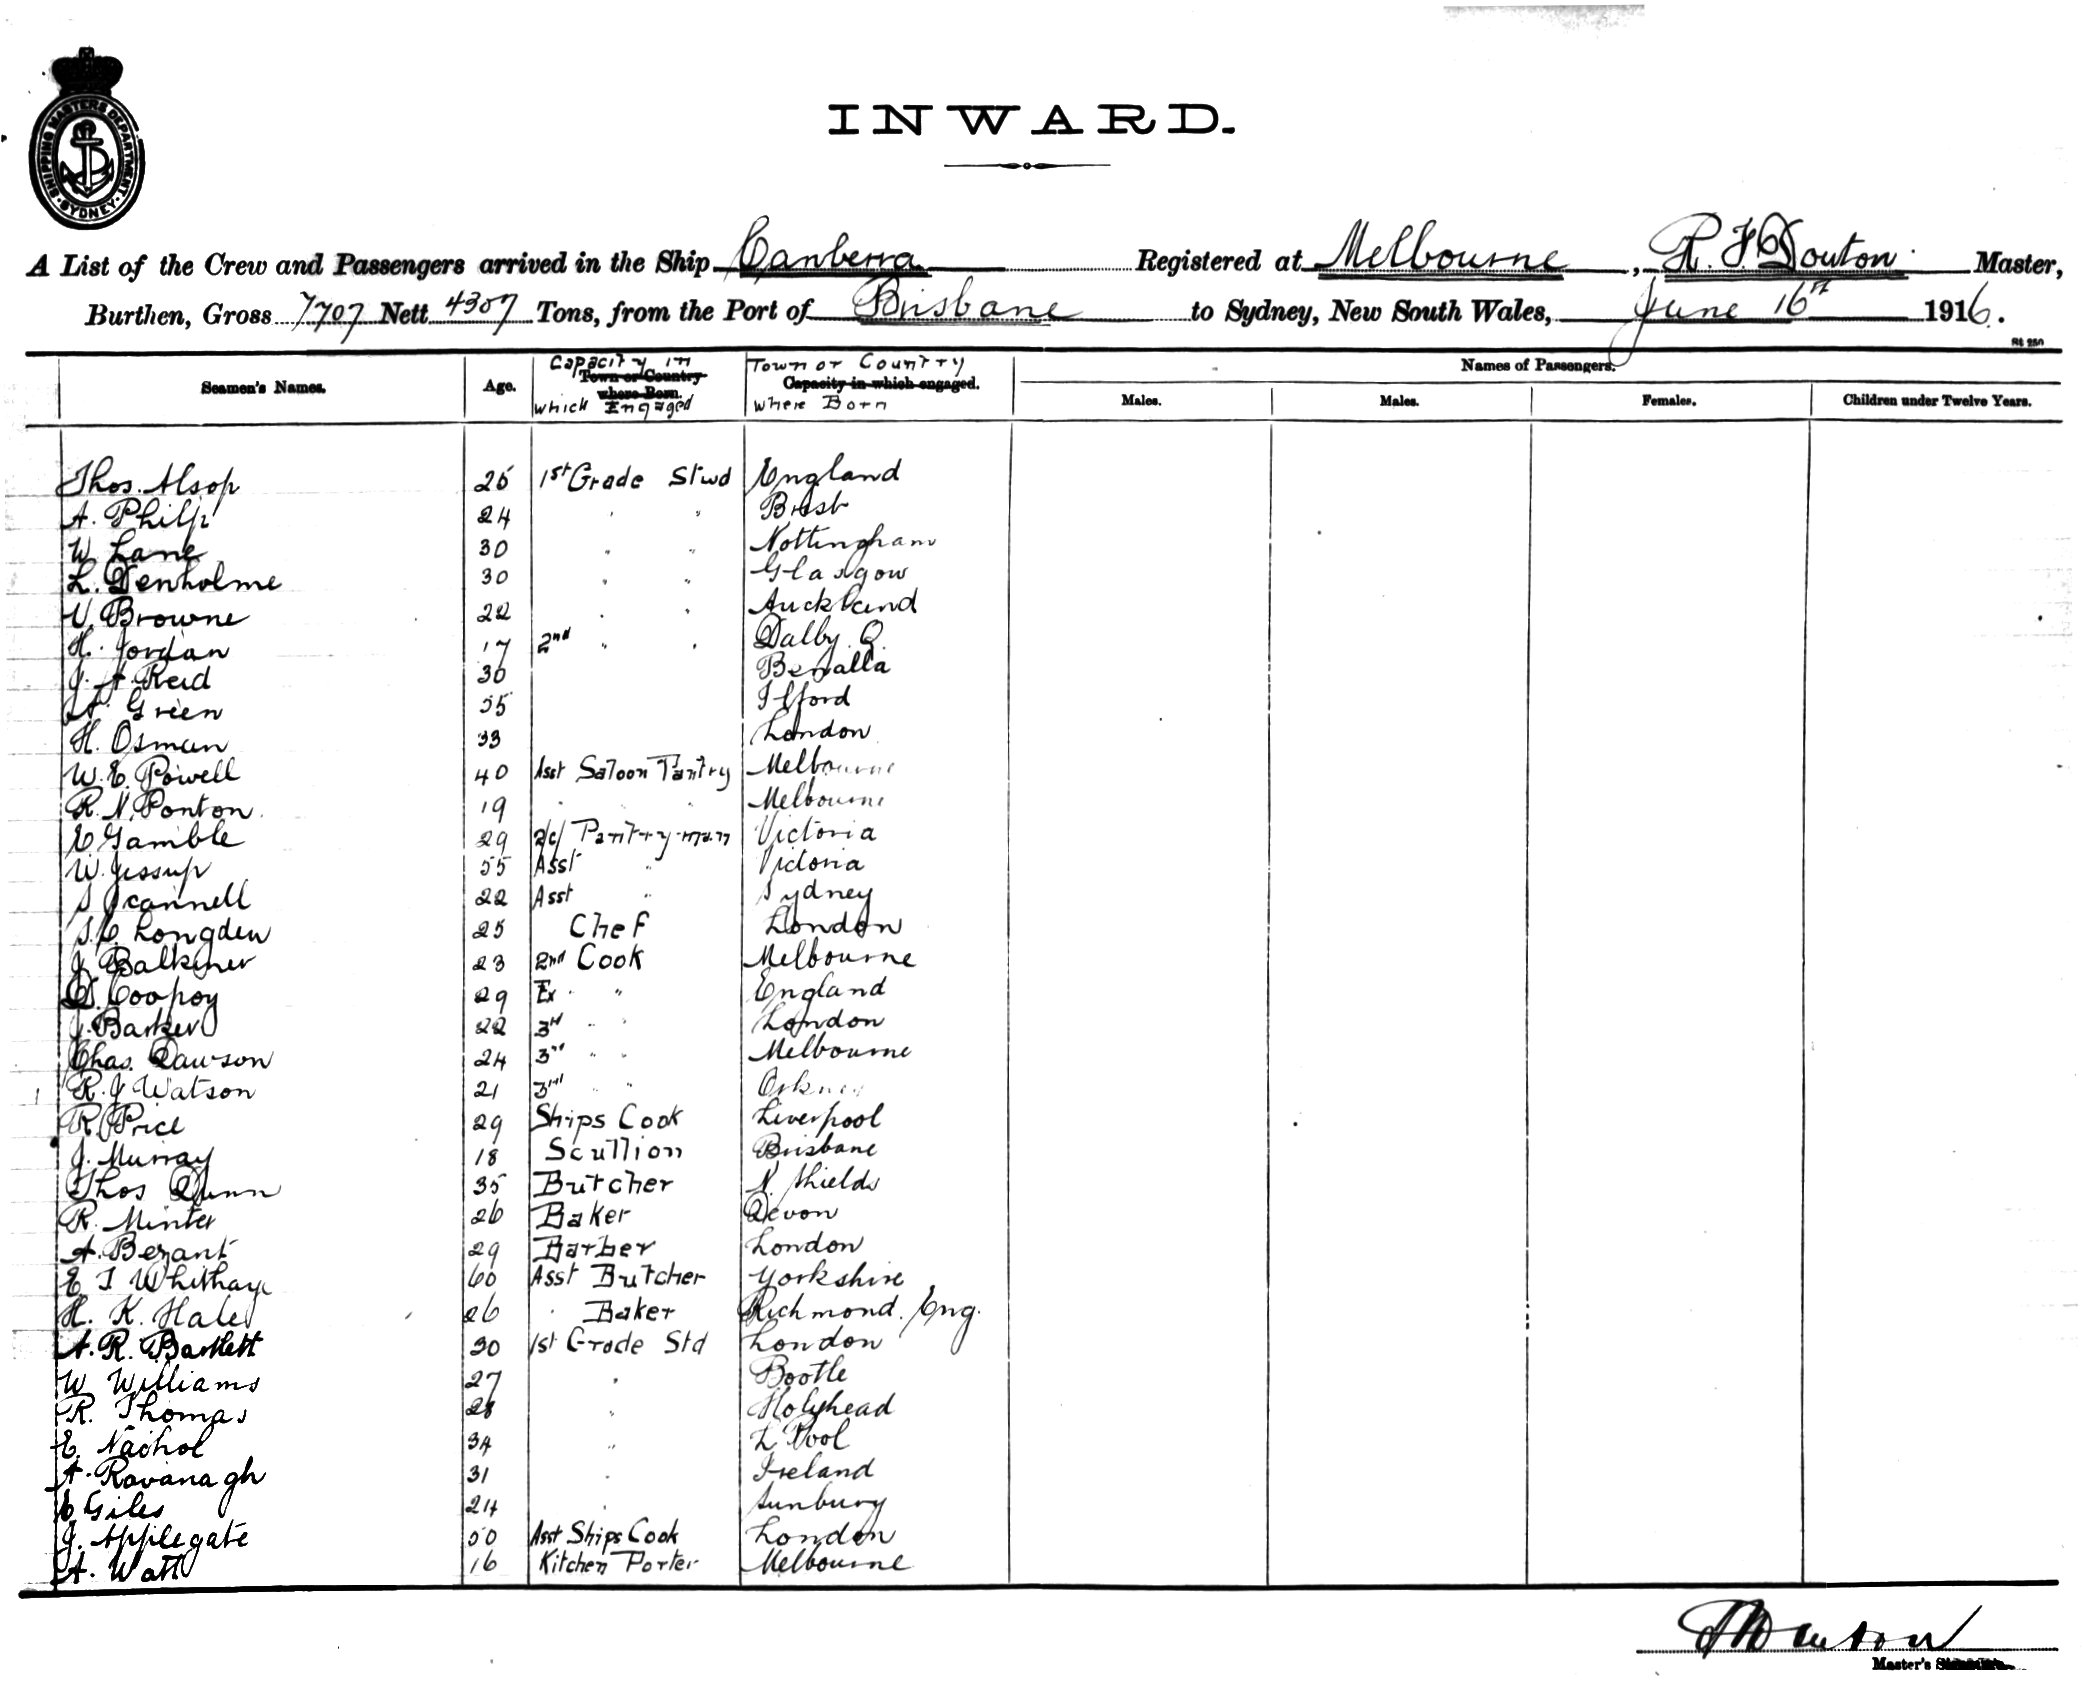 SHIPPING MASTERS DEPARTMENT
SYDNEY
INWARD.
A List of the Crew and Passengers arrived in the Ship Canberra Registered at Melbourne, R. J. Douton Master,
Burthen, Gross 7707 Nett 4307 Tons, from the Port of Brisbane to Sydney, New South Wales, June 16th 1916.
St 250
Seamen's Names. Age. Capacity in which Engaged Town or Country where Born Names of Passengers.
Town or Country where Born. Capacity in which engaged.
Males. Males. Females. Children under Twelve Years.
Thos. Alsop 25 1st Grade Stwd England
A. Philp 24 " " Brisb
W. Lane 30 " " Nottingham
L. Denholme 30 " " Glasgow
V. Browne 22 " " Auckland
H. Jordan 17 2nd " " Dalby. Q.
J. A. Reid 30 Benalla
A. Green 55 Ilford
H. Osman 33 London
W. E. Powell 40 Asst Saloon Pantry Melbourne
R. N. Ponton. 19 " " " Melbourne
E Gamble 29 2/cl Pantry-man Victoria
W. Jessup 55 Asst " Victoria
S Scannell 22 Asst " Sydney
Longden 25 Chef London
J. Balkiner 23 2nd Cook Melbourne
D. Coopoy 29 Ex " " England
J. Barker 22 3rd " " London
Chas. Dawson 24 3rd " " Melbourne
R. J Watson 21 3rd " " Orkney
R. Price 29 Ships Cook Liverpool
J. Murray 18 Scullion Brisbane
Thos Dunn 35 Butcher N. Shields
R. Minter 26 Baker Devon
A. Bezant 29 Barber London
E. J Whithaye 60 Asst Butcher Yorkshire
H. K. Hale 26 " Baker Richmond. Eng.
A. R. Bartlett 30 1st Grade Std London
W Williams 27 " Bootle
R. Thomas 28 " Holyhead
E. Nachol 34 " L Pool
A. Kavanagh 31 " Ireland
C Giles 24 " Sunbury
J. Applegate 50 Asst Ships Cook London
A. Watt 16 Kitchen Porter Melbourne
Master's